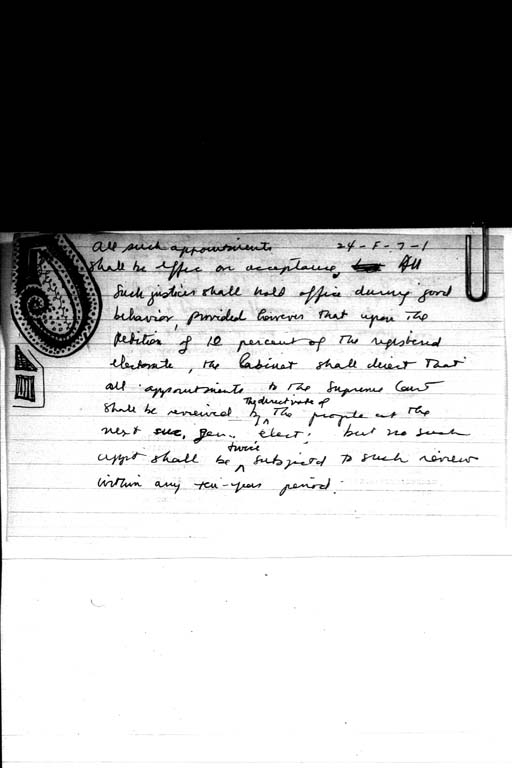 All such appointments 24-F-7-1
shall be effec on acceptance. All
such justices shall hold office during good
behavior, provided however that upon the
petition of 10 percent of the registered
electorate, the Cabinet shall direct that
all appointments to the Supreme Court
shall be reviewed by the direct vote of the people at the
next suc, gen. elect; but no such
appt shall be twice subjected to such review
within any ten-year period.